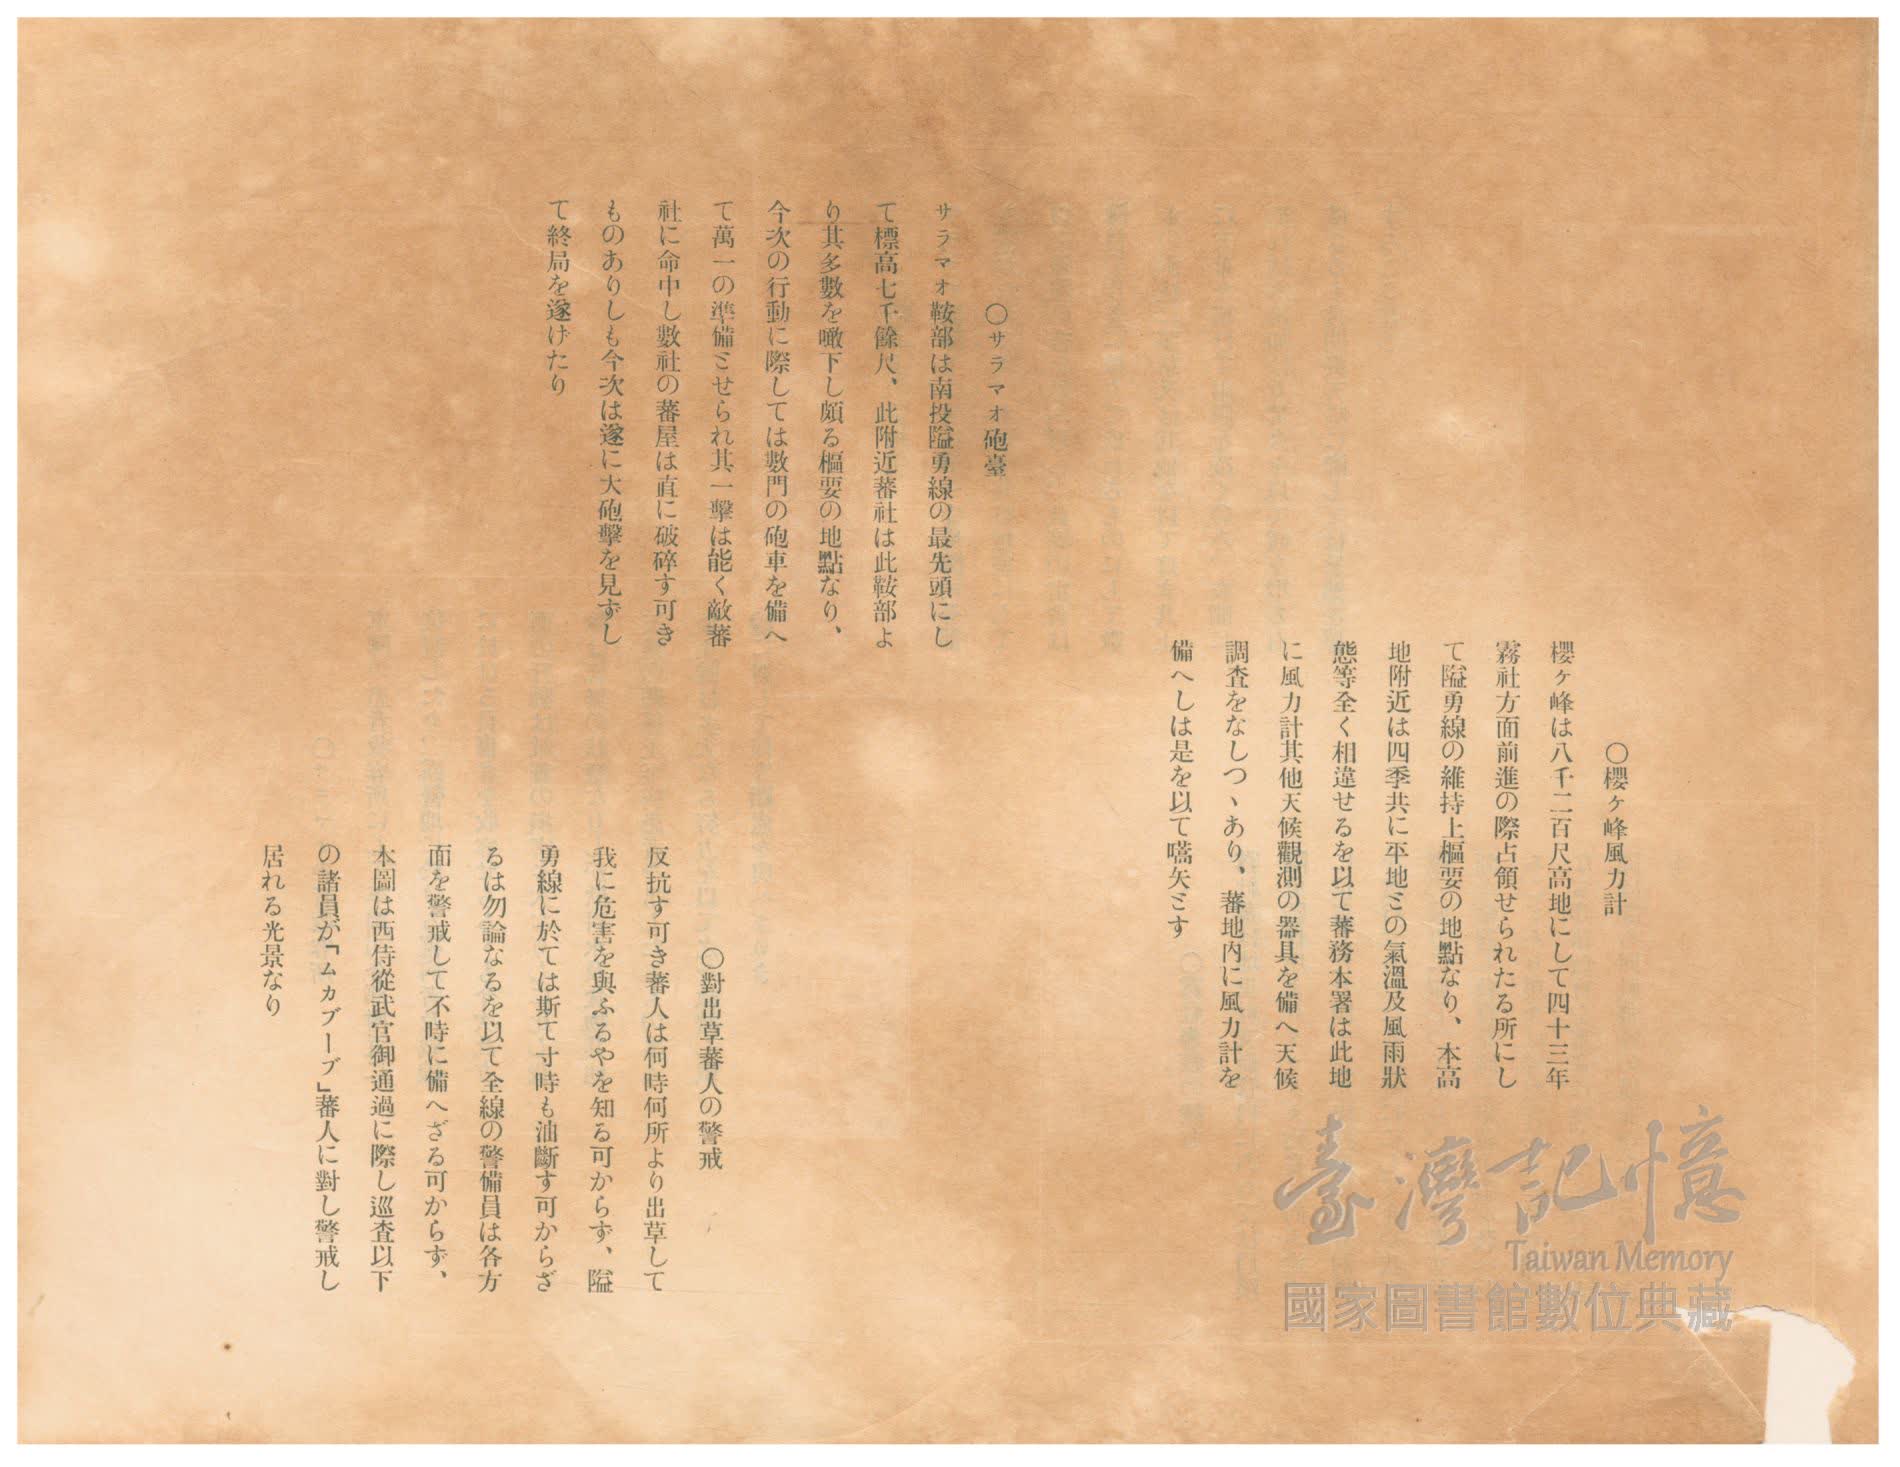 〇櫻ヶ峰風力計
櫻ヶ峰は八千二百尺高地にして四十三年
霧社方面前進の際占領せられたる所にし
て隘勇線の維持上樞要の地點なり、本高
地附近は四季共に平地ミの氣溫及風雨狀
態等全く相違せるを以て蕃務本署は此地
に風力計其他天候觀測の器具を備へ天候
調査をなしつゝあり、蕃地內に風力計を
備へしは是を以て嚆矢ミす
〇サラマオ砲臺
サラマオ鞍部は南投隘勇線の最先頭にし
て標高七千餘尺、此附近蕃社は此鞍部よ
り其多數を瞰下し頗る樞要の地點なり、
今次の行動に際しては數門の砲車を備へ
て萬一の準備ミせられ其一擊は能く敵蕃
社に命中し數社の蕃屋は直に破碎す可き
ものありしも今次は遂に大砲擊を見ずし
て終局を遂げたり
〇對出草蕃人の警戒
反抗す可き蕃人は何時何所より出草して
我に危害を與ふるやを知る可からず、隘
勇線に於ては斯て寸時も油斷す可からざ
るは勿論なるを以て全線の警備員は各方
面を警戒して不時に備へざる可からず、
本圖は西侍從武官御通過に際し巡査以下
の諸員が「ムカブーブ」蕃人に對し警戒し
居れる光景なり
臺灣記憶
Taiwan Memory
國家圖書館數位典藏